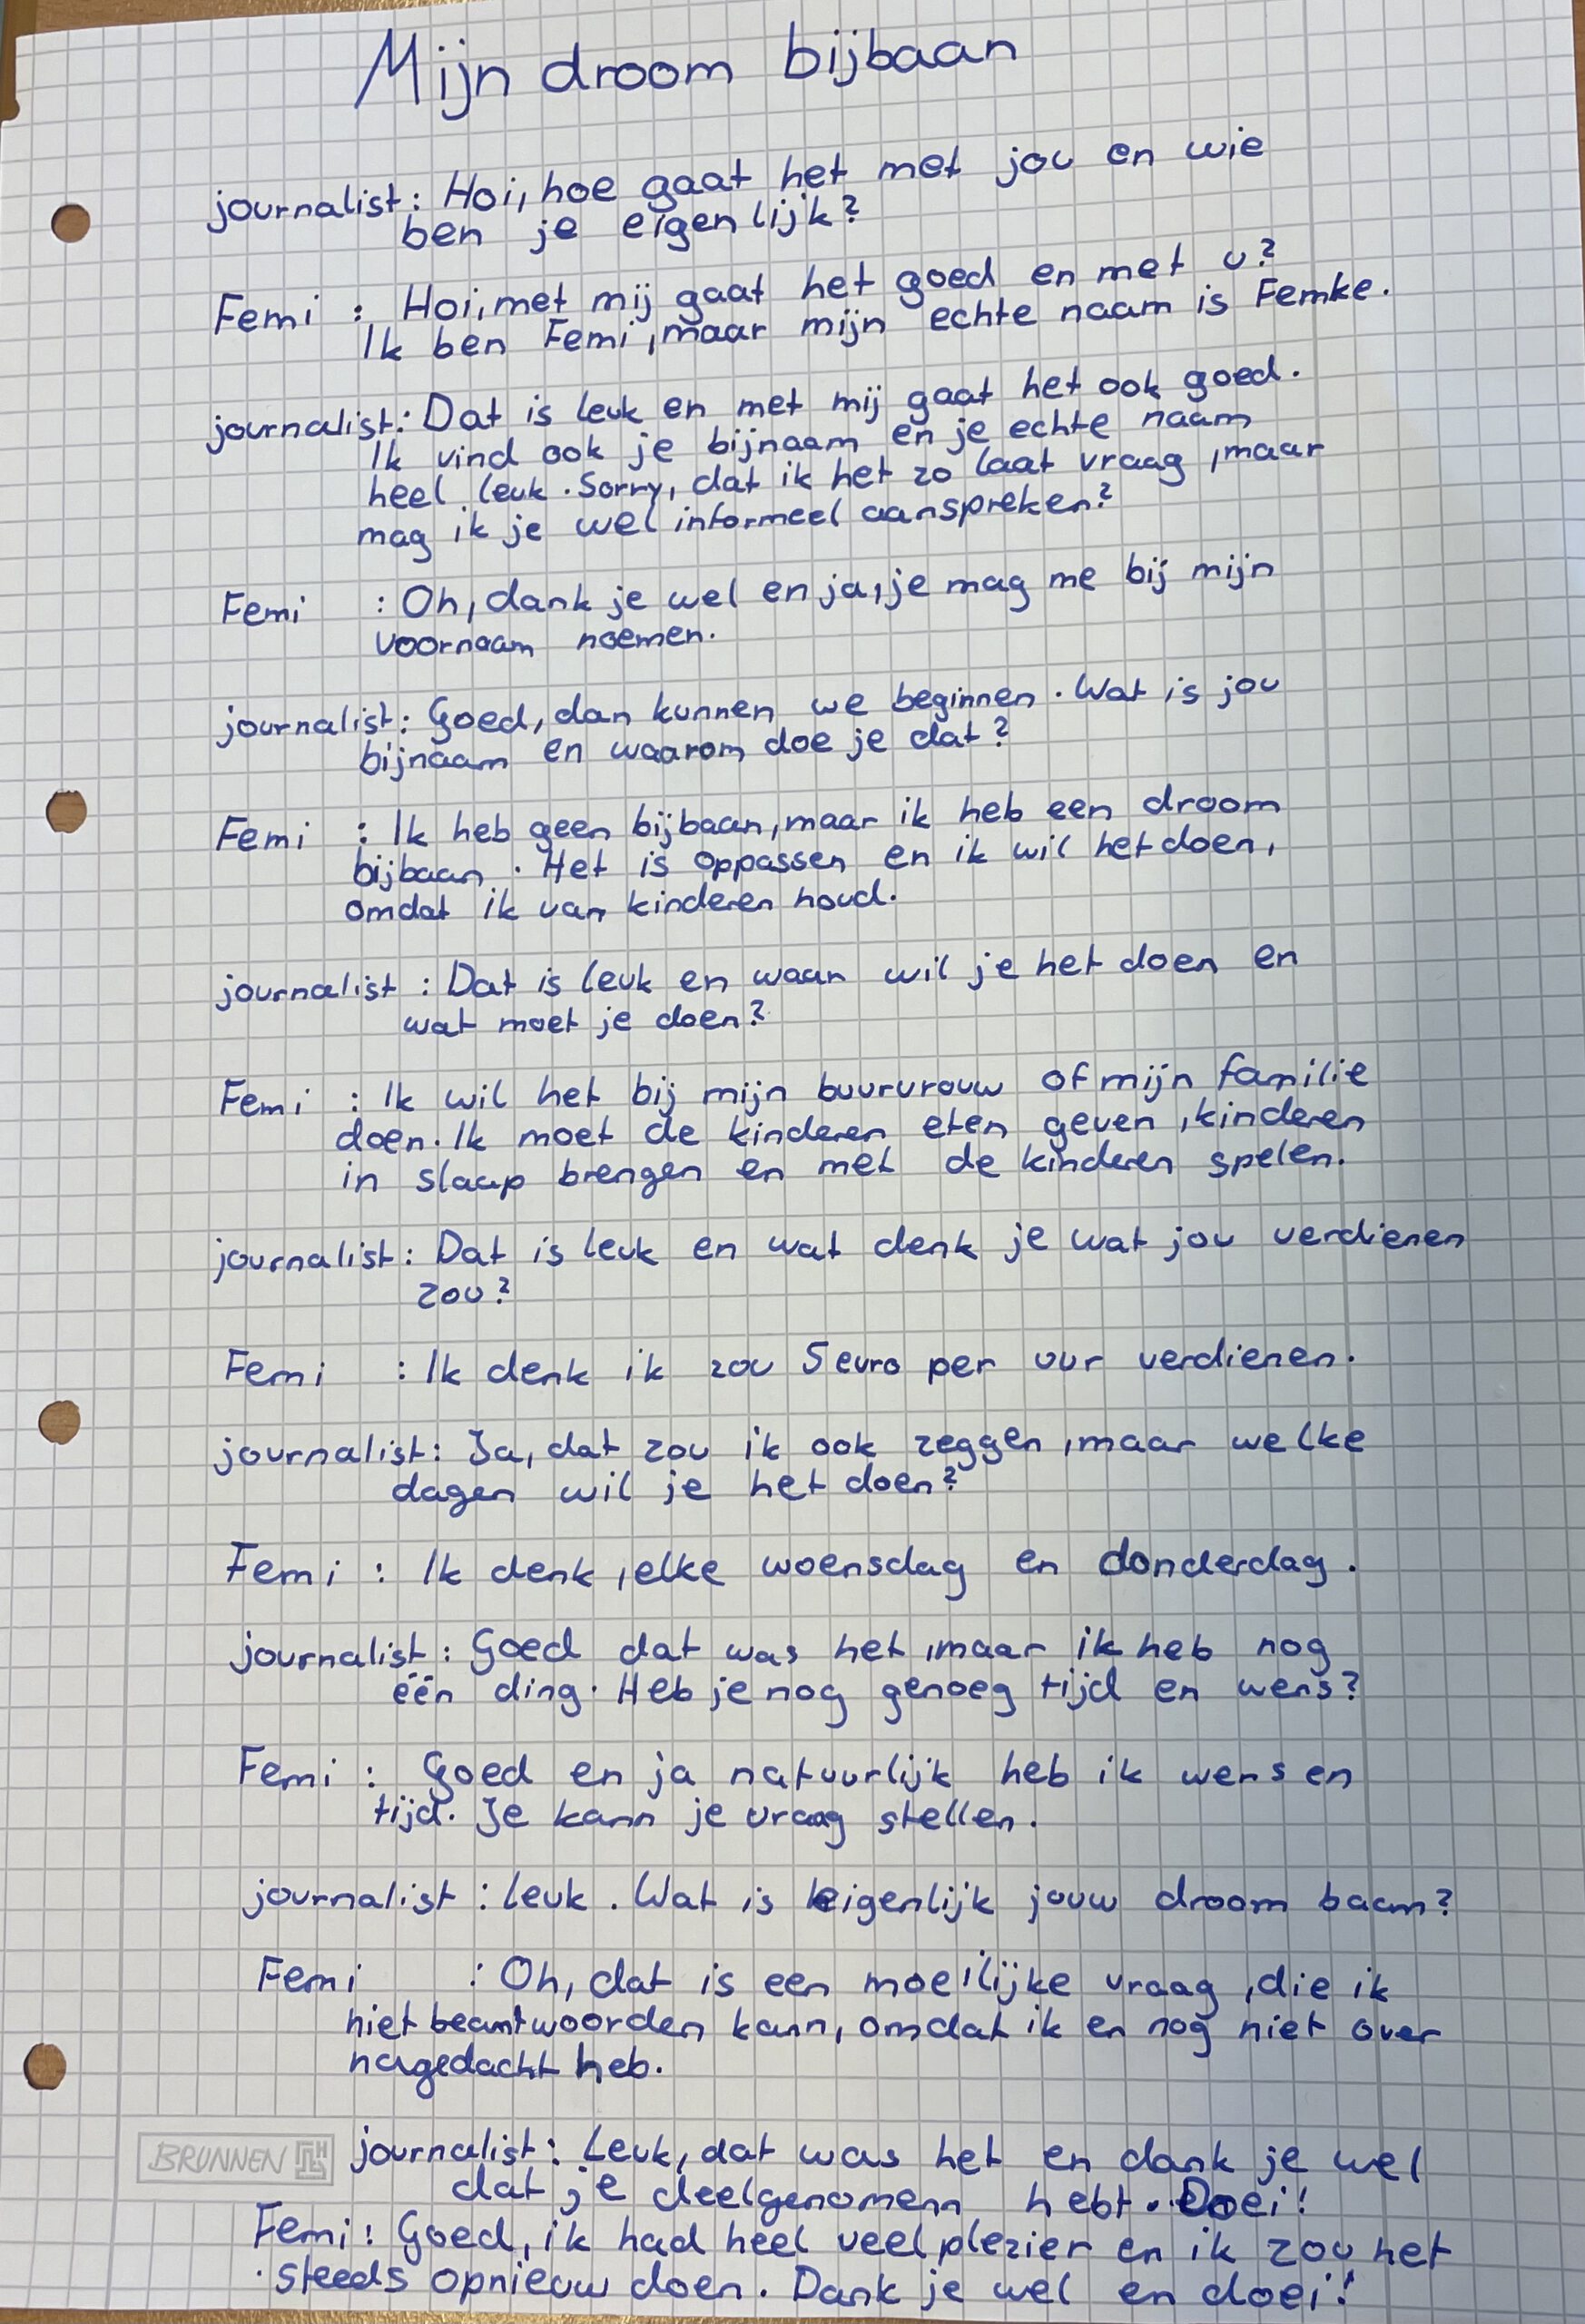 Mijn droom bijbaan
journalist: Hoi, hoe gaat het met jou en wie
ben je eigenlijk?
Femi : Hoi, met mij gaat het goed en met u?
Ik ben Femi, maar mijn echte naam is Femke.
journalist: Dat is leuk en met mij gaat het ook goed.
Ik vind ook je bijnaam en je echte naam
heel leuk. Sorry, dat ik het zo laat vraag, maar
mag ik je wel informeel aanspreken?
Femi : Oh, dank je wel en ja, je mag me bij mijn
voornaam noemen.
journalist: Goed, dan kunnen we beginnen. Wat is jou
bijnaam en waarom doe je dat?
Femi : Ik heb geen bijbaan, maar ik heb een droom
bijbaan. Het is oppassen en ik wil het doen,
omdat ik van kinderen houd.
journalist : Dat is leuk en waar wil je het doen en
wat moet je doen?
Femi : Ik wil het bij mijn buurvrouw of mijn familie
doen. Ik moet de kinderen eten geven, kinderen
in slaap brengen en met de kinderen spelen.
journalist: Dat is leuk en wat denk je wat jou verdienen
zou?
Femi : Ik denk ik zou 5 euro per uur verdienen.
journalist: Ja, dat zou ik ook zeggen, maar welke
dagen wil je het doen?
Femi : Ik denk, elke woensdag en donderdag.
journalist: Goed dat was het, maar ik heb nog
één ding. Heb je nog genoeg tijd en wens?
Femi : Goed en ja natuurlijk heb ik wens en
tijd. Je kann je vraag stellen.
journalist : Leuk. Wat is eigenlijk jouw droom baan?
Femi : Oh, dat is een moeilijke vraag, die ik
niet beantwoorden kann, omdat ik er nog niet over
nagedacht heb.
BRUNNEN
journalist: Leuk, dat was het en dank je wel
dat je deelgenomenn hebt. Doei!
Femi: Goed, ik had heel veel plezier en ik zou het
steeds opnieuw doen. Dank je wel en doei!